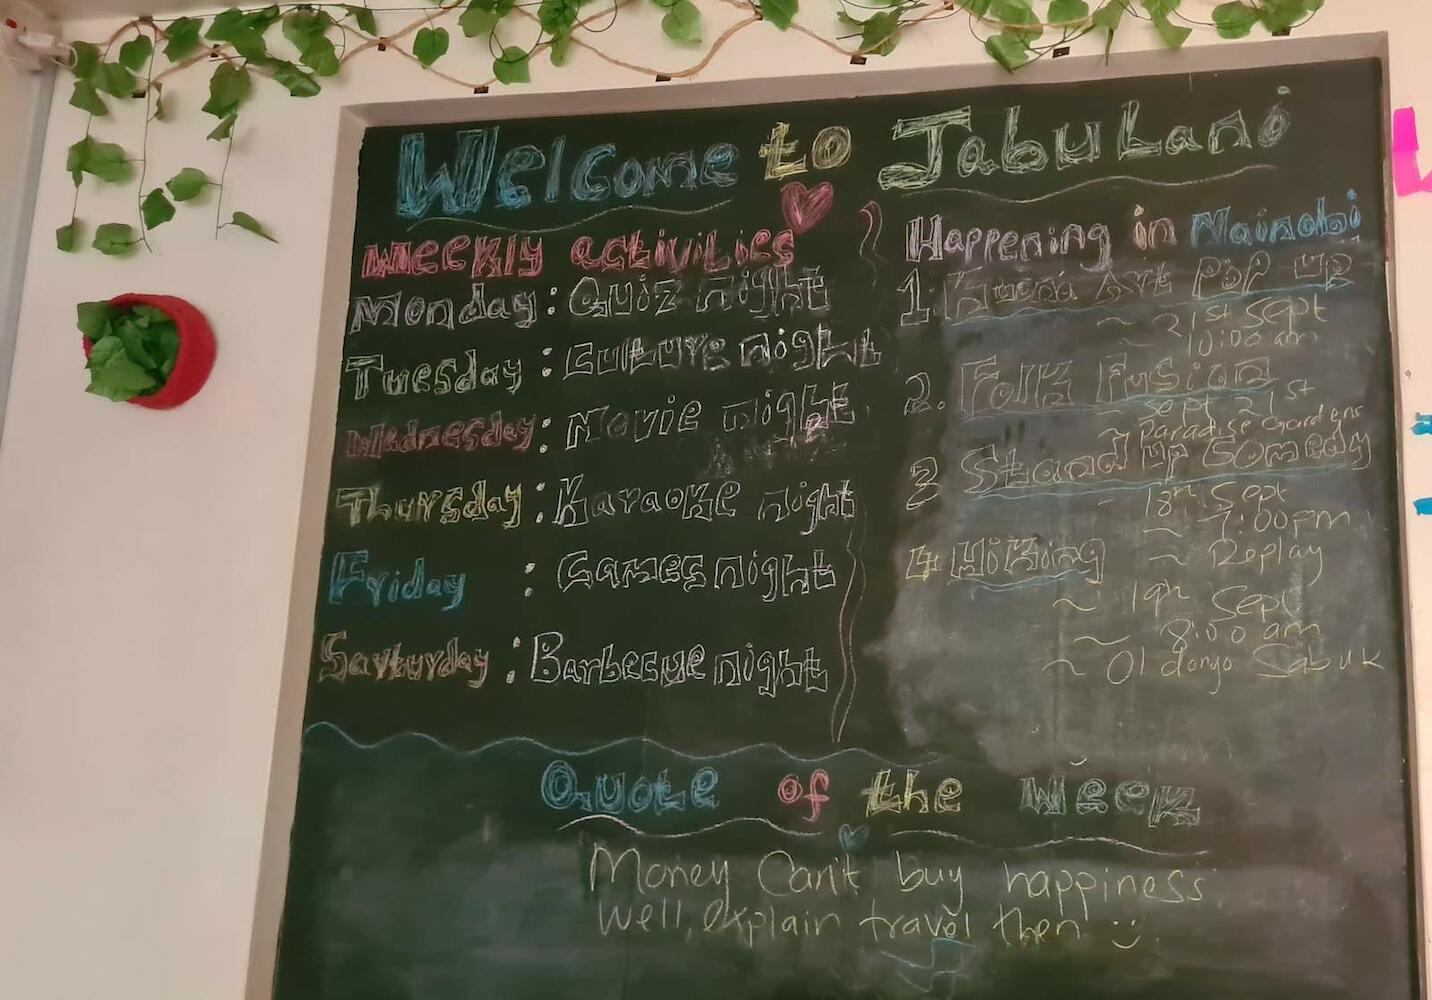 Welcome to Jabulani
Weekly activities
Monday : Quiz night
Tuesday : Culture night
Wednesday : Movie night
Thursday : Karaoke night
Friday : Games night
Sarturday : Barbecue night
Happening in Nairobi
1. Art Pop up
~ 21st Sept
~ 10:00 am
2. Folk Fusion
~ Sept 21st
~ Paradise Gardens
3 Stand up Comedy
~ 18th Sept
~ 7:00pm
~ Replay
4 Hiking
~ 19th Sept
~ 8:00 am
~ Ol donyo Sabuk
Quote of the Week
Money Can't buy happiness
Well, explain travel then :)